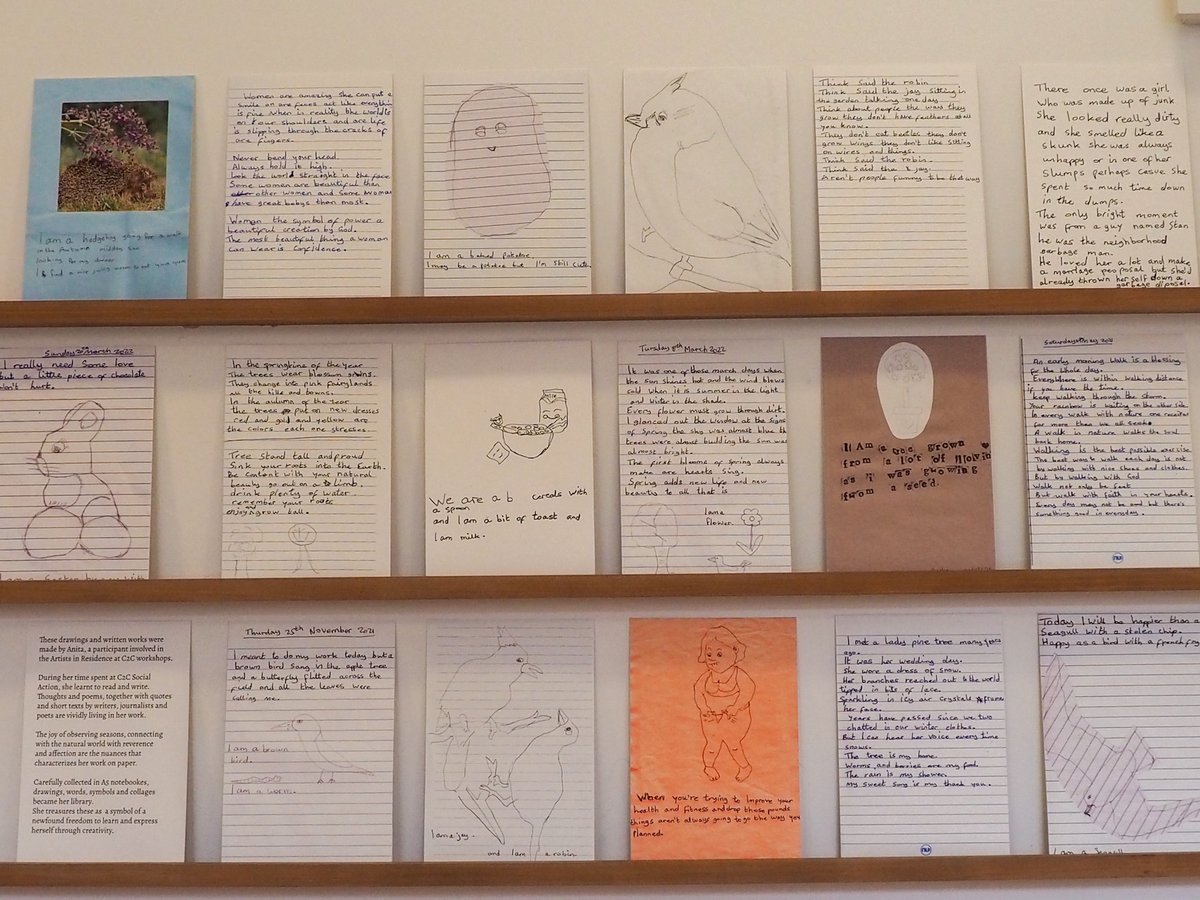 I am a hedgehog going for a walk
in the Autumn midday sun
looking for my dinner
Women are amazing she can put a
smile on are faces act like everything
is fine when in reality the world is
on four shoulders and are life
is slipping through the cracks of
are fingers.
Never bend your head.
Always hold it high.
Look the world straight in the face
Some women are beautiful than
other women and some woman
have great babys than most.
Woman the symbol of power a
beautiful creation by God.
The most beautiful thing a woman
can wear is confidence.
I am a baked potatoe
I may be a potatoe but I'm still cute.
Think said the robin
Think said the jay sitting in
the garden talking one day.
Think about people the way they
grow they don't have feathers at all
you know.
They don't eat beetles they don't
grow wings they don't like sitting
on wires and things.
Think said the robin.
Think said the jay.
Aren't people funny to be that way
There once was a girl
Who was made up of junk
She looked really dirty
and she smelled like a
skunk she was always
unhappy or in one of her
slumps perhaps casue she
spent so much time down
in the dumps.
The only bright moment
was from a guy named Stan
he was the neighborhood
garbage man.
He loved her a lot and make
a marriage peoposal but she'd
already thrown herself down a
garbage disposal.
Sunday 20th March 2022
I really need some love
but a little piece of chocolate
won't hurt.
In the springtime of the year
The trees wear blossom gowns.
They change into pink fairylands
all the hills and towns.
In the autumn of the year
the trees put on new dresses
red and gold and yellow are
the colors each one stresses.
Tree stand tall and proud
Sink your roots into the Earth.
Be content with your natural
beauty go out on a limb.
drink plenty of water
remember your roots
enjoy grow tall.
We are a b cereals with
a spoon
and I am a bit of toast and
I am milk.
Tursday 8th March 2022
It was one of those march days when
the sun shines hot and the wind blows
cold when it is summer in the light
and winter in the shade.
Every flower must grow through dirt.
I glanced out the window at the signs
of spring the sky was almost blue the
trees were almost budding the sun was
almost bright.
The first blooms of spring always
make are hearts sing.
Spring adds new life and new
beauty to all that is
I am a
flower.
I Am a tree grown
from a lot of lovin
as i was growing
from a seed.
An early morning walk is a blessing
for the whole day.
Everywhere is within walking distance
if you have the time.
keep walking through the storm.
Your rainbow is waiting on the other side.
In every walk with nature one receives
far more than we all seeks
A walk in nature walks the soul
back home.
Walking is the best possible exercise
The best way to walk each day is not
by walking with nice shoes and clothes.
But by walking with God
Walk not only be foot
But walk with faith in your hearts.
Every day may not be god but there's
something good in everyday.
These drawings and written works were
made by Anita, a participant involved in
the Artists in Residence at C2C workshops.
During her time spent at C2C Social
Action, she learnt to read and write.
Thoughts and poems, together with quotes
and short texts by writers, journalists and
poets are vividly living in her work.
The joy of observing seasons, connecting
with the natural world with reverence
and affection are the nuances that
characterizes her work on paper.
Carefully collected in A5 notebookes,
drawings, words, symbols and collages
became her library.
She treasures these as a symbol of a
newfound freedom to learn and express
herself through creativity.
Thursday 25th November 2021
I meant to do my work today but a
brown bird sang in the apple tree
and a butterfly flitted across the
field and all the leaves were
calling me.
I am a brown
bird.
I am a worm.
I am a jay.
and I am a robin
When you're trying to improve your
health and fitness and drop those pounds
things aren't always going to go the way you
Planned.
I met a lady pine tree many years
ago.
It was her wedding day.
She wore a dress of snow.
Her branches reached out to the world
tipped in bits of lace.
Sparkling in icy air crystals frame
her face.
Years have passed since we two
chatted in our winter clothes.
But I can hear her voice every time
snows.
The tree is my home.
Worms and berries are my food.
The rain is my shower.
My sweet song is my thank you.
Today I will be happier than a
Seagull with a stolen chip.
Happy as a bird with a french fry
I am a Seagull